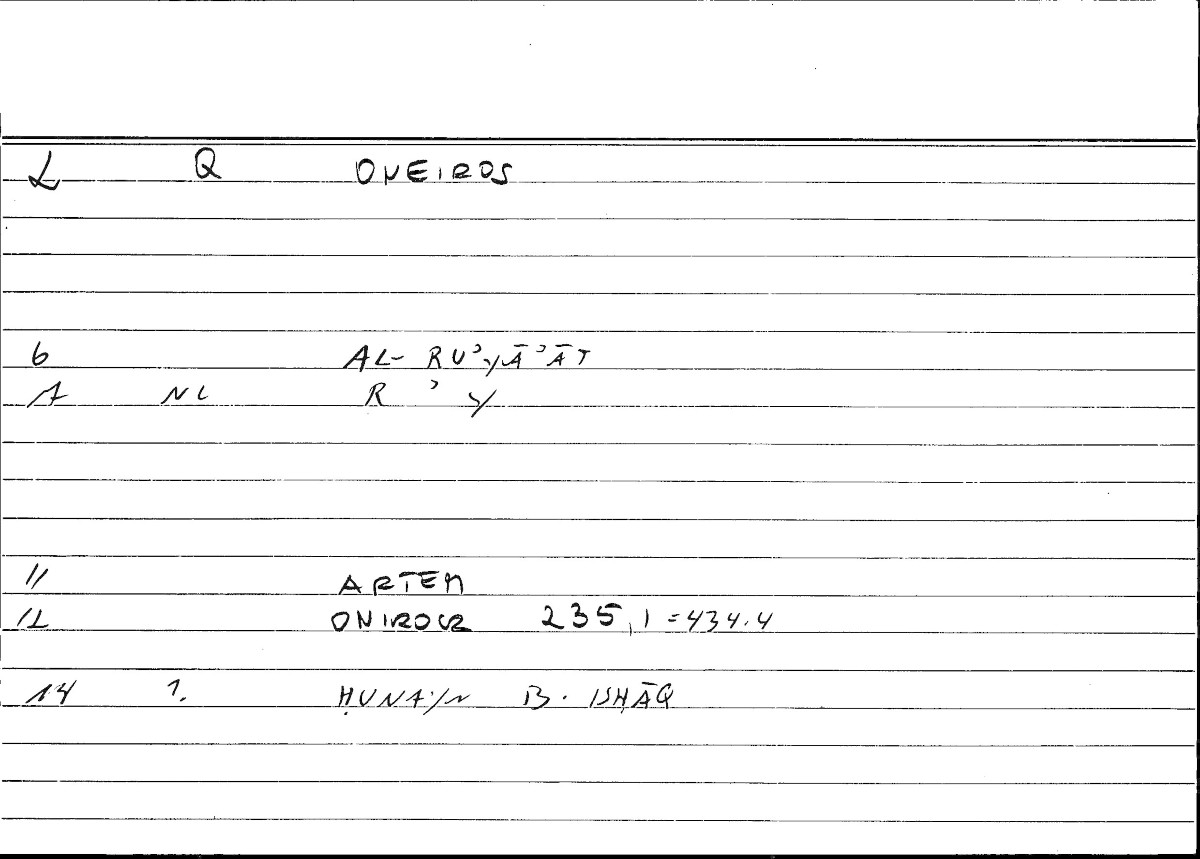 2 Q ONEIROS
6 AL- RUʾYĀʾĀT
7 NL R ʾ Y
11 ARTEM
12 ONIROCR 235,1 = 434.4
14 1. ḤUNAYN B. ISḤĀQ